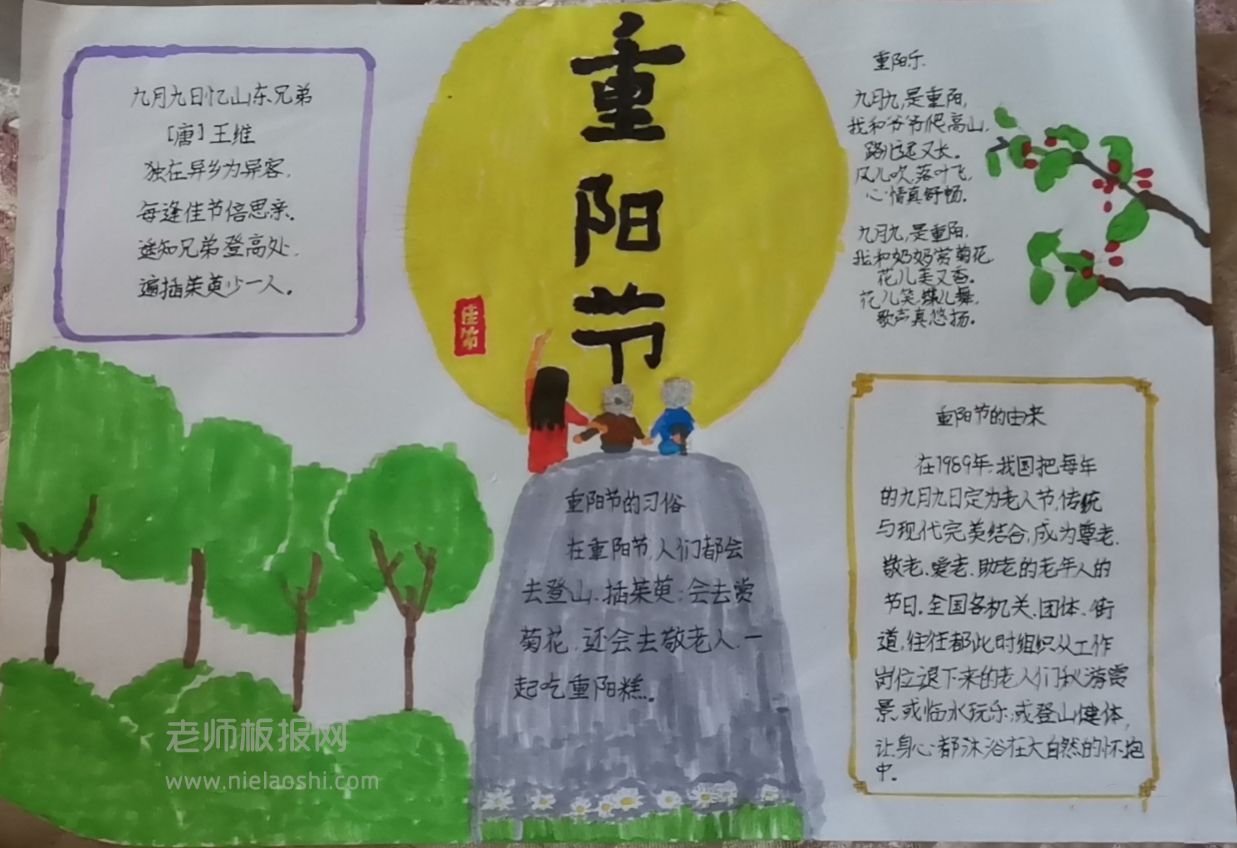 九月九日忆山东兄弟
[唐]王维
独在异乡为异客,
每逢佳节倍思亲。
遥知兄弟登高处,
遍插茱萸少一人。
重
阳
节
佳节
重阳乐
九月九,是重阳,
我和爷爷爬高山,
路儿远又长。
风儿吹,落叶飞,
心情真舒畅。
九月九,是重阳,
我和奶奶赏菊花,
花儿美又香。
花儿笑,蝶儿舞,
歌声真悠扬。
重阳节的习俗
在重阳节,人们都会
去登山、插茱萸;会去赏
菊花,还会去敬老人,一
起吃重阳糕。
重阳节的由来
在1989年,我国把每年
的九月九日定为老人节,传统
与现代完美结合,成为尊老、
敬老、爱老、助老的老年人的
节日。全国各机关、团体、街
道,往往都此时组织从工作
岗位退下来的老人们秋游赏
景,或临水玩乐;或登山健体,
让身心都沐浴在大自然的怀抱
中。
老师板报网
www.nielaoshi.com